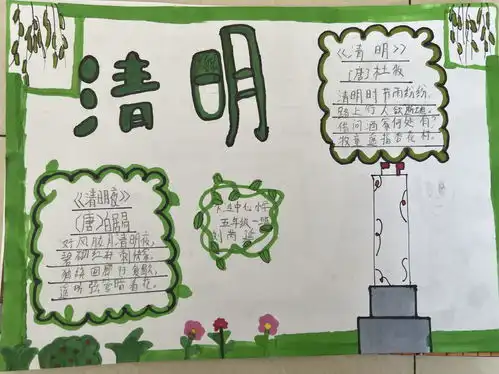 清明
《清明》
(唐)杜牧
清明时节雨纷纷
路上行人欲断魂。
借问酒家何处有?
牧童遥指杏花村。
《清明夜》
(唐)白居易
好风胧月清明夜,
碧砌红轩刺史家。
独绕回廊行复歇,
遥听弦管暗看花。
五年级一班